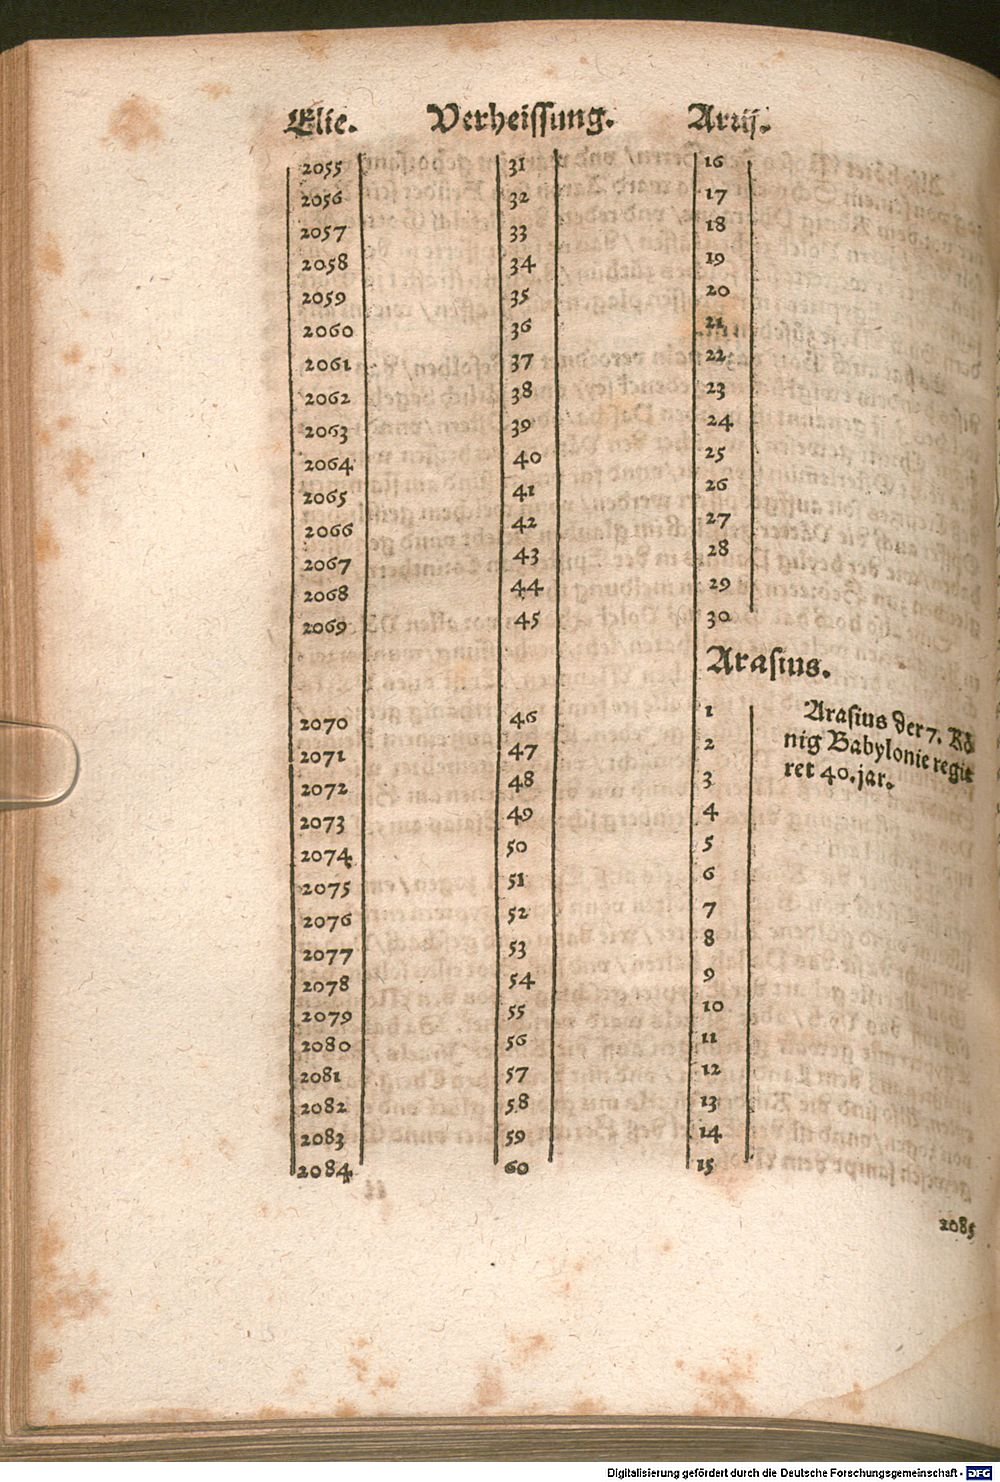 Elie. Verheissung. Arrij.
2055 31 16
2056 32 17
2057 33 18
2058 34 19
2059 35 20
2060 36 21
2061 37 22
2062 38 23
2063 39 24
2064 40 25
2065 41 26
2066 42 27
2067 43 28
2068 44 29
2069 45 30
Arasius.
2070 46 1
2071 47 2
2072 48 3
2073 49 4
2074 50 5
2075 51 6
2076 52 7
2077 53 8
2078 54 9
2079 55 10
2080 56 11
2081 57 12
2082 58 13
2083 59 14
2084 60 15
Arasius der 7. Kö
nig Babylonie regie
ret 40. jar.
2085
Digitalisierung gefördert durch die Deutsche Forschungsgemeinschaft - DFG